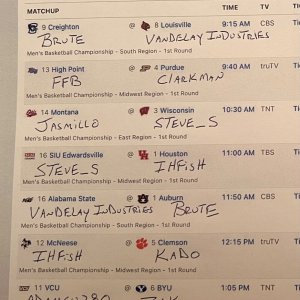 MATCHUP TIME TV
9 Creighton @ 8 Louisville 9:15 AM CBS
BRUTE VANDELAY INDUSTRIES
Men's Basketball Championship - South Region - 1st Round
13 High Point @ 4 Purdue 9:40 AM truTV
FFB CLARKMAN
Men's Basketball Championship - Midwest Region - 1st Round
14 Montana @ 3 Wisconsin 10:30 AM TNT
JASMILLO STEVE_S
Men's Basketball Championship - East Region - 1st Round
16 SIU Edwardsville @ 1 Houston 11:00 AM TBS
STEVE_S IHFISH
Men's Basketball Championship - Midwest Region - 1st Round
16 Alabama State @ 1 Auburn 11:50 AM CBS
VANDELAY INDUSTRIES BRUTE
Men's Basketball Championship - South Region - 1st Round
12 McNeese @ 5 Clemson 12:15 PM truTV
IHFISH KADO
Men's Basketball Championship - Midwest Region - 1st Round
11 VCU @ 6 BYU 1:05 PM TNT